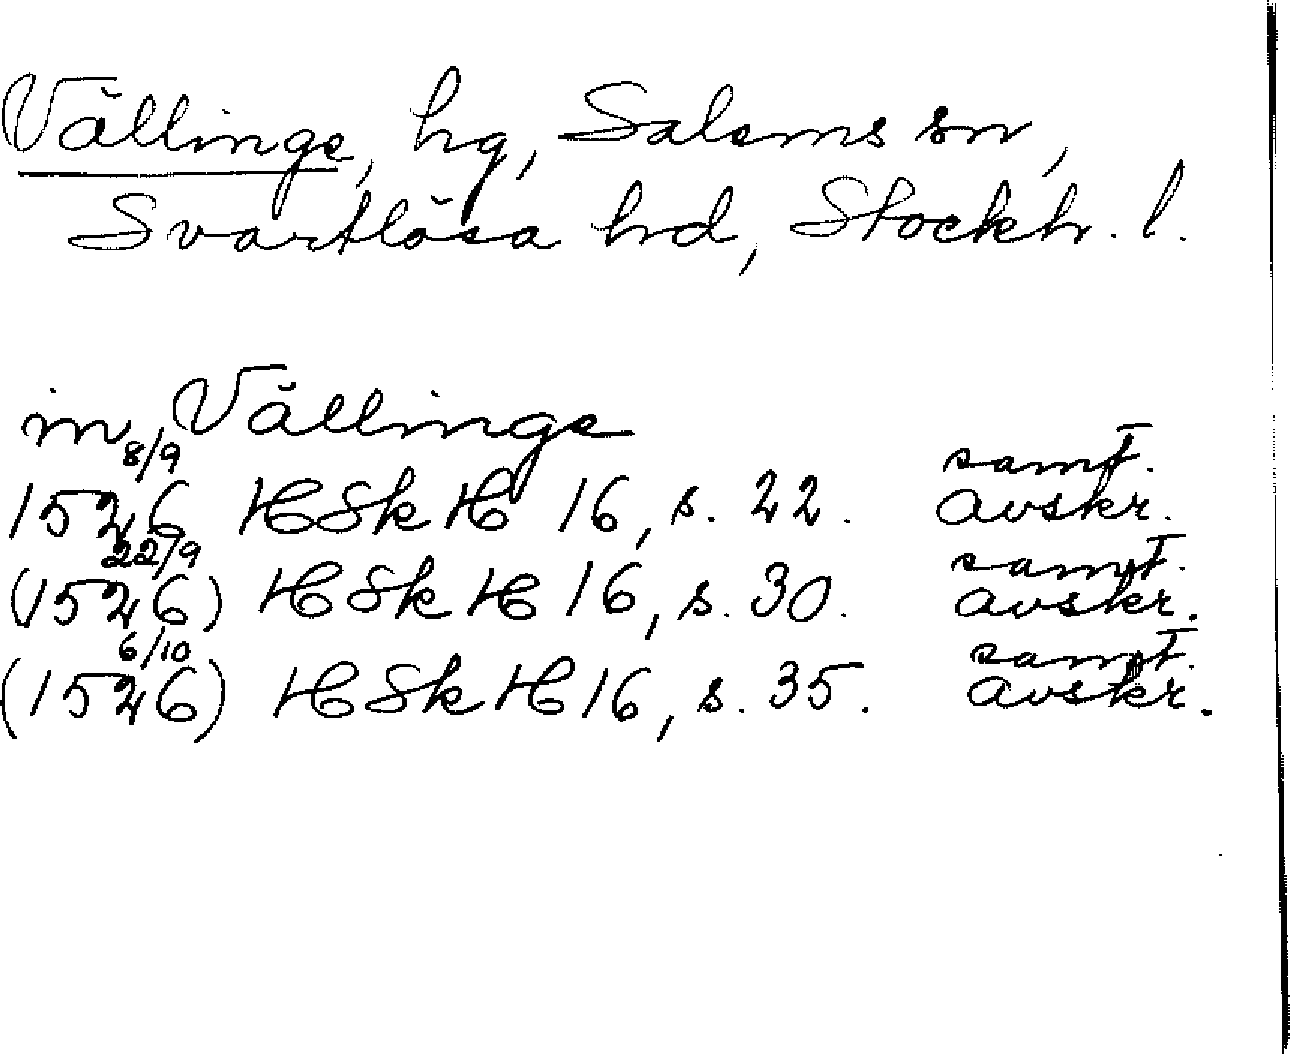 Vällinge, hg, Salems sn,
Svartlösa hd, Stockh. l.
in Vällinge
8/9 samt.
1526 HSkH 16, s. 22. avskr.
22/9 samt.
(1526) HSkH 16, s. 30. avskr.
6/10 samt.
(1526) HSkH 16, s. 35. avskr.